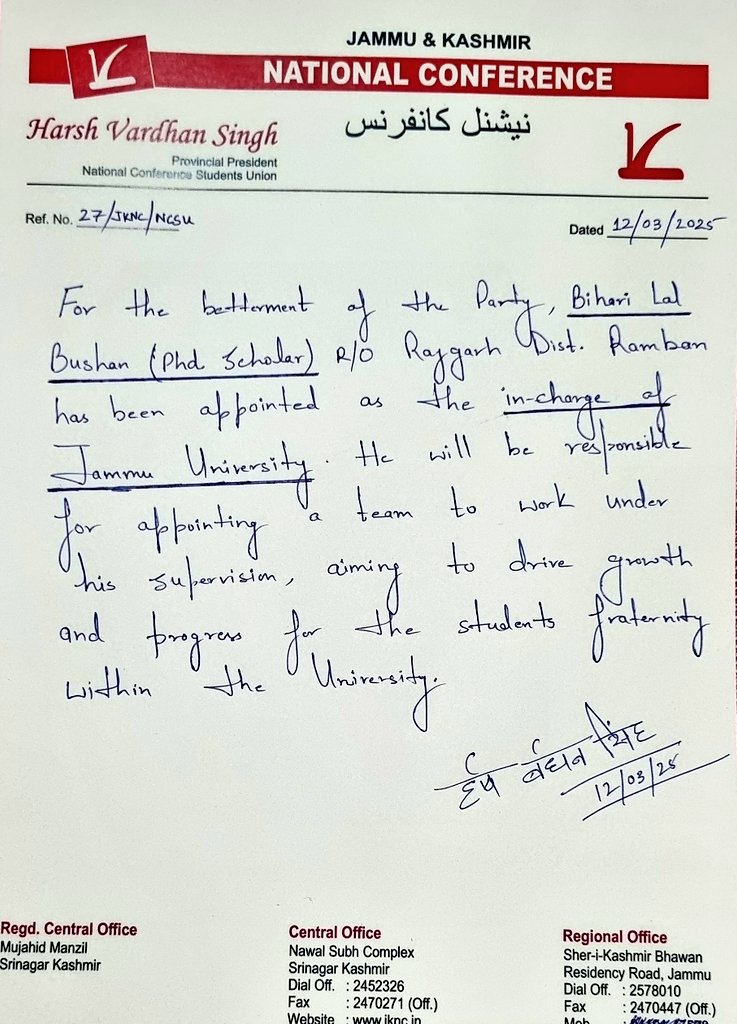 JAMMU & KASHMIR
NATIONAL CONFERENCE
نیشنل کانفرنس
Harsh Vardhan Singh
Provincial President
National Conference Students Union
Ref. No. 27/JKNC/NCSU
Dated 12/03/2025
For the betterment of the Party, Bihari Lal
Bushan (Phd Scholar) R/O Rajgarh Dist. Ramban
has been appointed as the in-charge of
Jammu University. He will be responsible
for appointing a team to work under
his supervision, aiming to drive growth
and progress for the students fraternity
within the University.
हर्ष वर्धन सिंह
12/03/25
Regd. Central Office
Mujahid Manzil
Srinagar Kashmir
Central Office
Nawal Subh Complex
Srinagar Kashmir
Dial Off. : 2452326
Fax : 2470271 (Off.)
Website : www.jknc.in
Regional Office
Sher-i-Kashmir Bhawan
Residency Road, Jammu
Dial Off. : 2578010
Fax : 2470447 (Off.)
Mob.